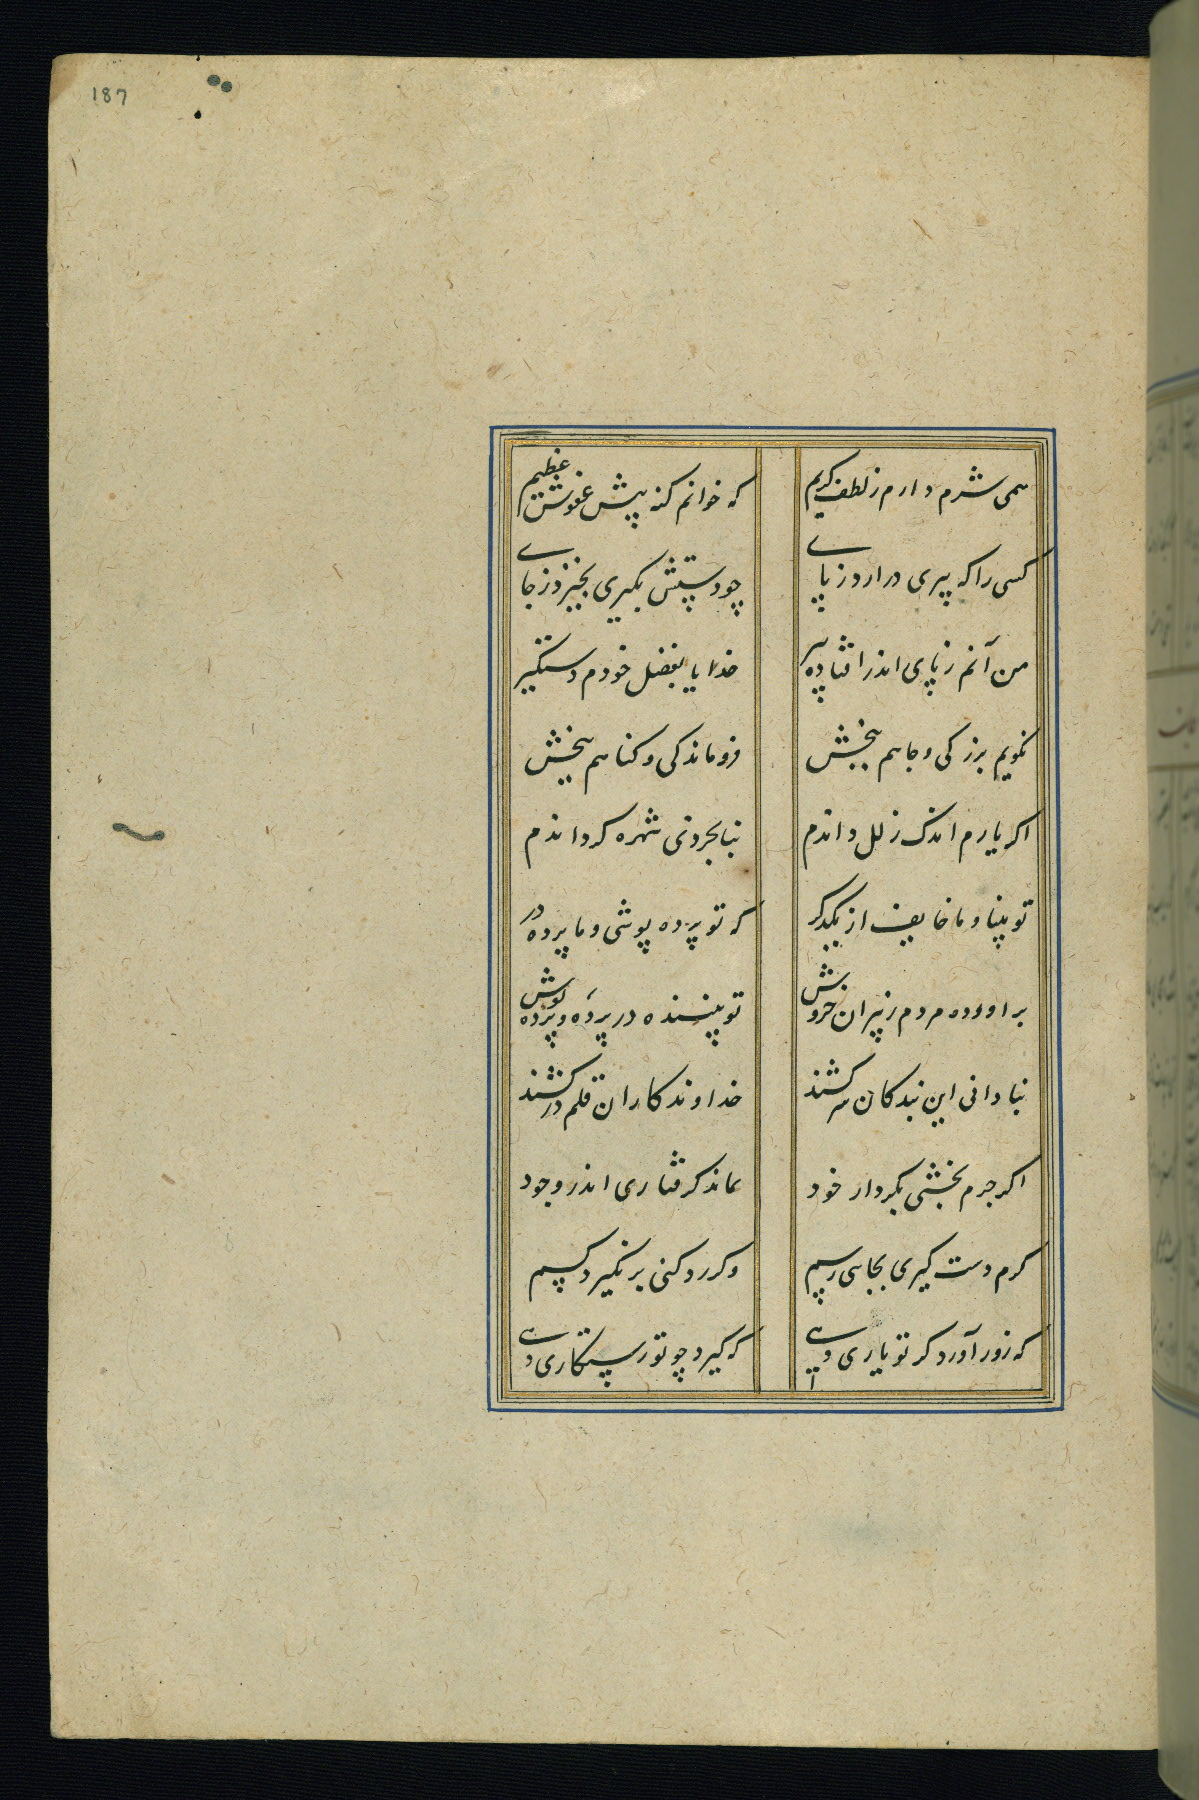 187
همی شرم دارم ز لطف کریم که خوانم گنه پیش عفوش عظیم
کسی را که پیری درارد ز پای چو دستش بگیری نخیزد ز جای
من آنم ز پای اندر افتاده پیر خدایا بفضل خودم دستگیر
نگویم بزرگی و جاهم ببخش فروماندگی و گناهم ببخش
اگر یارم اندک زلل داندم بنابخردی شهره گرداندم
تو بینا و ما خایف از یکدگر که تو پرده پوشی و ما پرده در
براورده مردم ز بیران خروش تو بیننده در پرده و پرده پوش
بنادانی این بندگان سرکشند خداوندگاران قلم درکشند
اگر جرم بخشی بکردار خود نماند گرفتاری اندر وجود
گرم دست گیری بجایی رسم وگر رد کنی بر نگیرد کسم
که زور آورد گر تو یاری دهی که گیرد چو تو رستگاری دهی